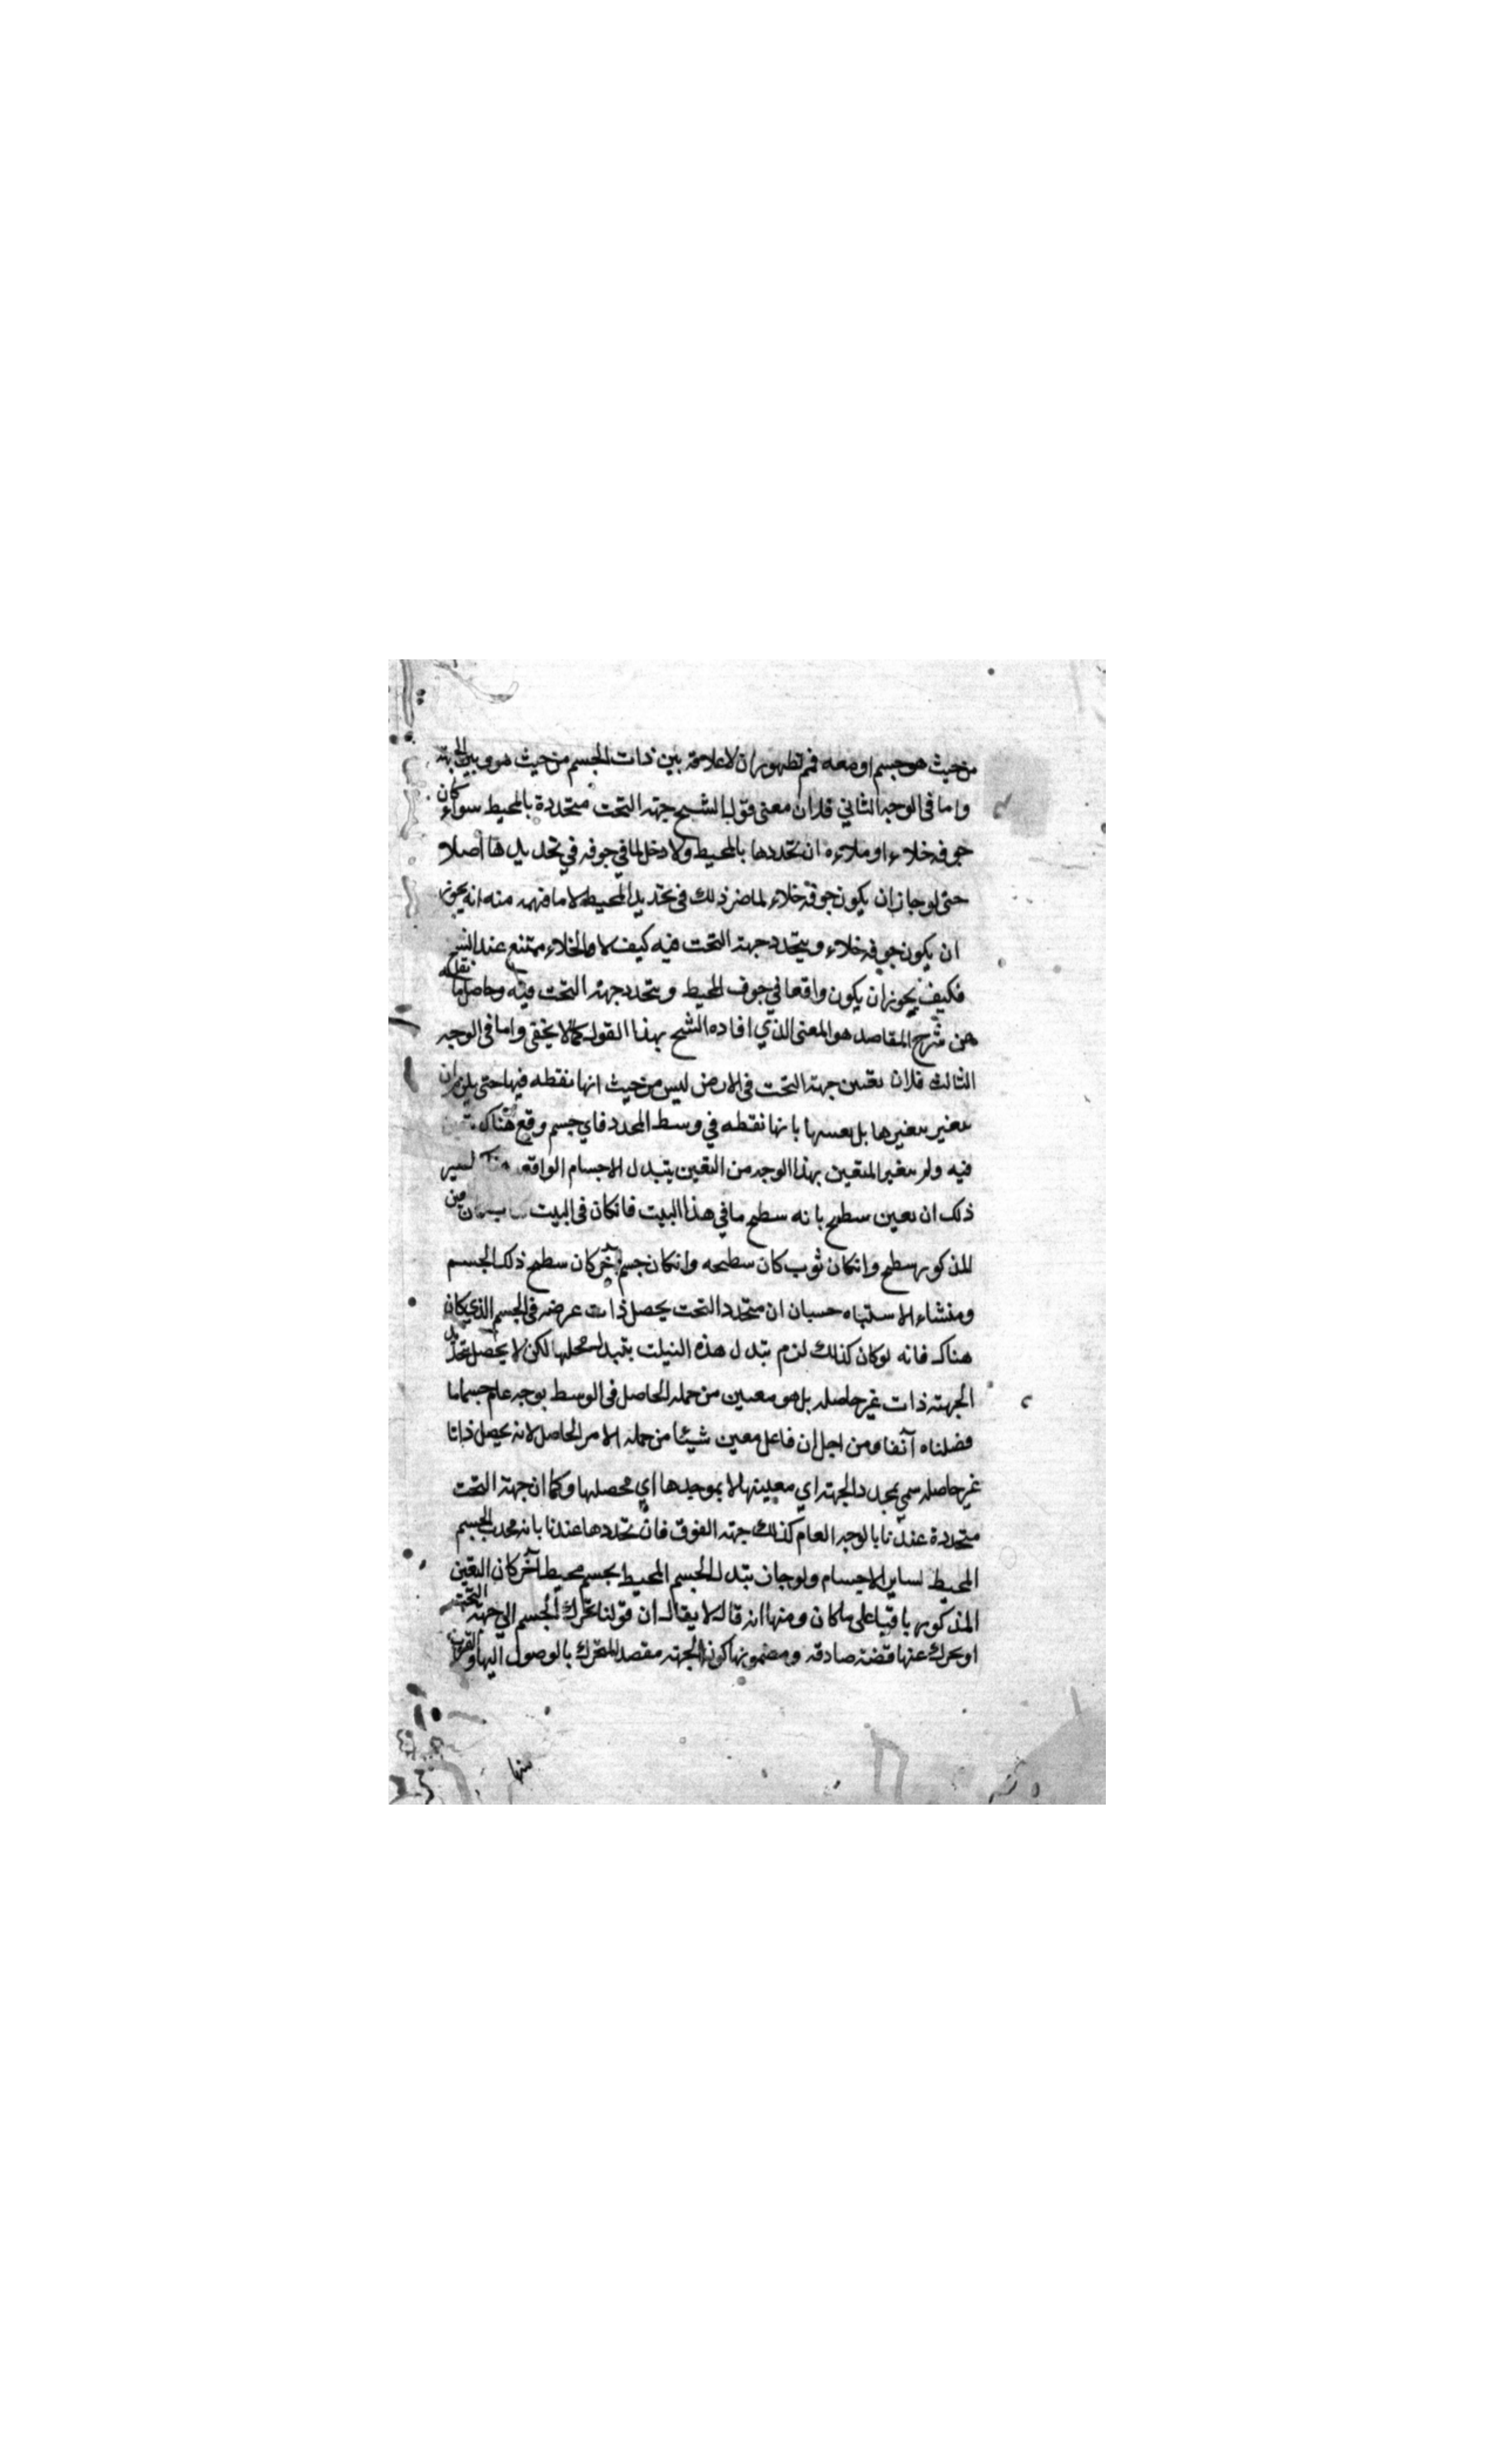 من حيث هو جسم او ضعه فمم لظهور ان لا علاقة بين ذات الجسم من حيث هو وبين الجهة
واما في الوجه الثاني فلان معنى قول الشيخ جهة التحت متحددة بالمحيط سواء كان
جوفه خلاء او ملاء ان تحددها بالمحيط ولا دخل لما في جوفه في تحديدها اصلا
حتى لو جاز ان يكون جوفه خلاء لما ضر ذلك في تحديد المحيط لا ما فهمه منه انه يجوز
ان يكون جوفه خلاء ويتحدد جهة التحت فيه كيف لا والخلاء ممتنع عند الشيخ
فكيف يجوز ان يكون واقعا في جوف المحيط ويتحدد جهة التحت فيه وحاصل ما نقله
عن شرح المقاصد هو المعنى الذي افاده الشيخ بهذا القول كما لا يخفى واما في الوجه
الثالث فلان تعين جهة التحت في الارض ليس من حيث انها نقطه فيها حتى يلزم ان
بتغيرها بل تعينها بانها نقطه في وسط المحدد فاي جسم وقع هناك تعين
فيه ولم يتغير المتعين بهذا الوجه من التعين بتبدل الاجسام الواقعة
ذلك ان تعين سطح بانه سطح ما في هذا البيت فان كان في البيت
المذكور سطح وان كان ثوب كان سطحه وان كان جسم آخر كان سطح ذلك الجسم
ومنشاء الاستباه حسبان ان متحدد التحت يحصل ذات عرضه في الجسم الذي كان
هناك فانه لو كان كذلك لزم تبدل هذه بتبدل محلها لكن لا يحصل تحدد
الجهة ذات غير حاصله بل هو معين من جمله الحاصل في الوسط بوجه عام حسبما
فصلناه آنفا ومن اجل ان فاعل معين شيئا من جملة الامر الحاصل لانه يحصل ذاتا
غير حاصله سمي بمحدد الجهة اي معينها لا بموجدها اي محصلها وكما ان جهة التحت
متحددة عندنا بالوجه العام كذلك جهة الفوق فان تحددها عندنا بانه محدب الجسم
المحيط لساير الاجسام ولو جاز تبدل الجسم المحيط بجسم محيط آخر كان التعين
المذكور باقيا على ما كان ومنها انه قال لا يقال ان قولنا تحرك الجسم الى جهة التحت
او تحرك عنها قضية صادقة ومضمونها كون الجهة مقصد المتحرك بالوصول اليها والقرب
منها